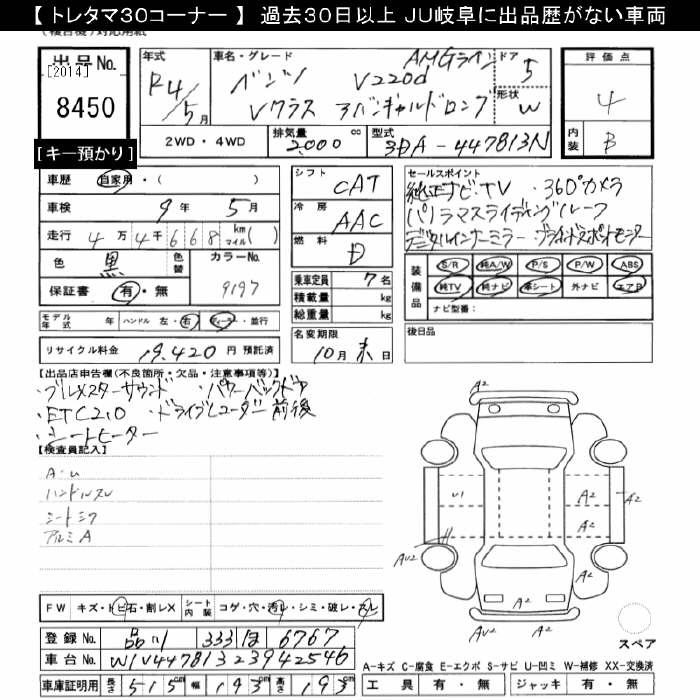 【 トレタマ30コーナー 】 過去30日以上 JU岐阜に出品歴がない車両
出品No. [2014] 8450 [キー預かり]
年式 R4/5月
車名・グレード ベンツ AMGライン V220d
Vクラス アバンギャルドロング
ドア 5 形状 W
評価点 4
内装 B
2WD・4WD 排気量 2000 cc 型式 3DA-447813N
車歴 自家用・( )
車検 9年 5月
走行 4万4千668 km マイル( )
色 黒 色替 カラーNo. 9197
保証書 有・無
シフト CAT
冷房 AAC
燃料 D
乗車定員 7名
積載量 kg
総重量 kg
セールスポイント
純正ナビ・TV ・360°カメラ
パノラマスライディングルーフ
デジタルインナーミラー・ブラインドスポットモニター
装備品 S/R 純A/W P/S P/W ABS
純TV 純ナビ 革シート 外ナビ エアB
ナビ型番:
モデル年式 年 ハンドル 左・右 ディーラー・並行
リサイクル料金 19,420 円 預託済
名変期限 10月末日
後日品
【出品店申告欄(不良箇所・欠品・注意事項等)】
・ブルメスターサウンド ・パワーバックドア
・ETC2.0 ・ドライブレコーダー前後
・シートヒーター
【検査員記入】
A・U
ハンドルスレ
シートシワ
アルミA
A2
U1 A2 A2
A2
AU2 A2
A2
AU2
FW キズ・トビ石・割レX シート内装 コゲ・穴・汚レ・シミ・破レ・スレ
登録No. 品川 333 ほ 6767
車台No. W1V44781323942546
車庫証明用 長さ 515cm 幅 193cm 高さ 193cm
スペア
A-キズ C-腐食 E-エクボ S-サビ U-凹ミ W-補修 XX-交換済
工具 有・無 ジャッキ 有・無